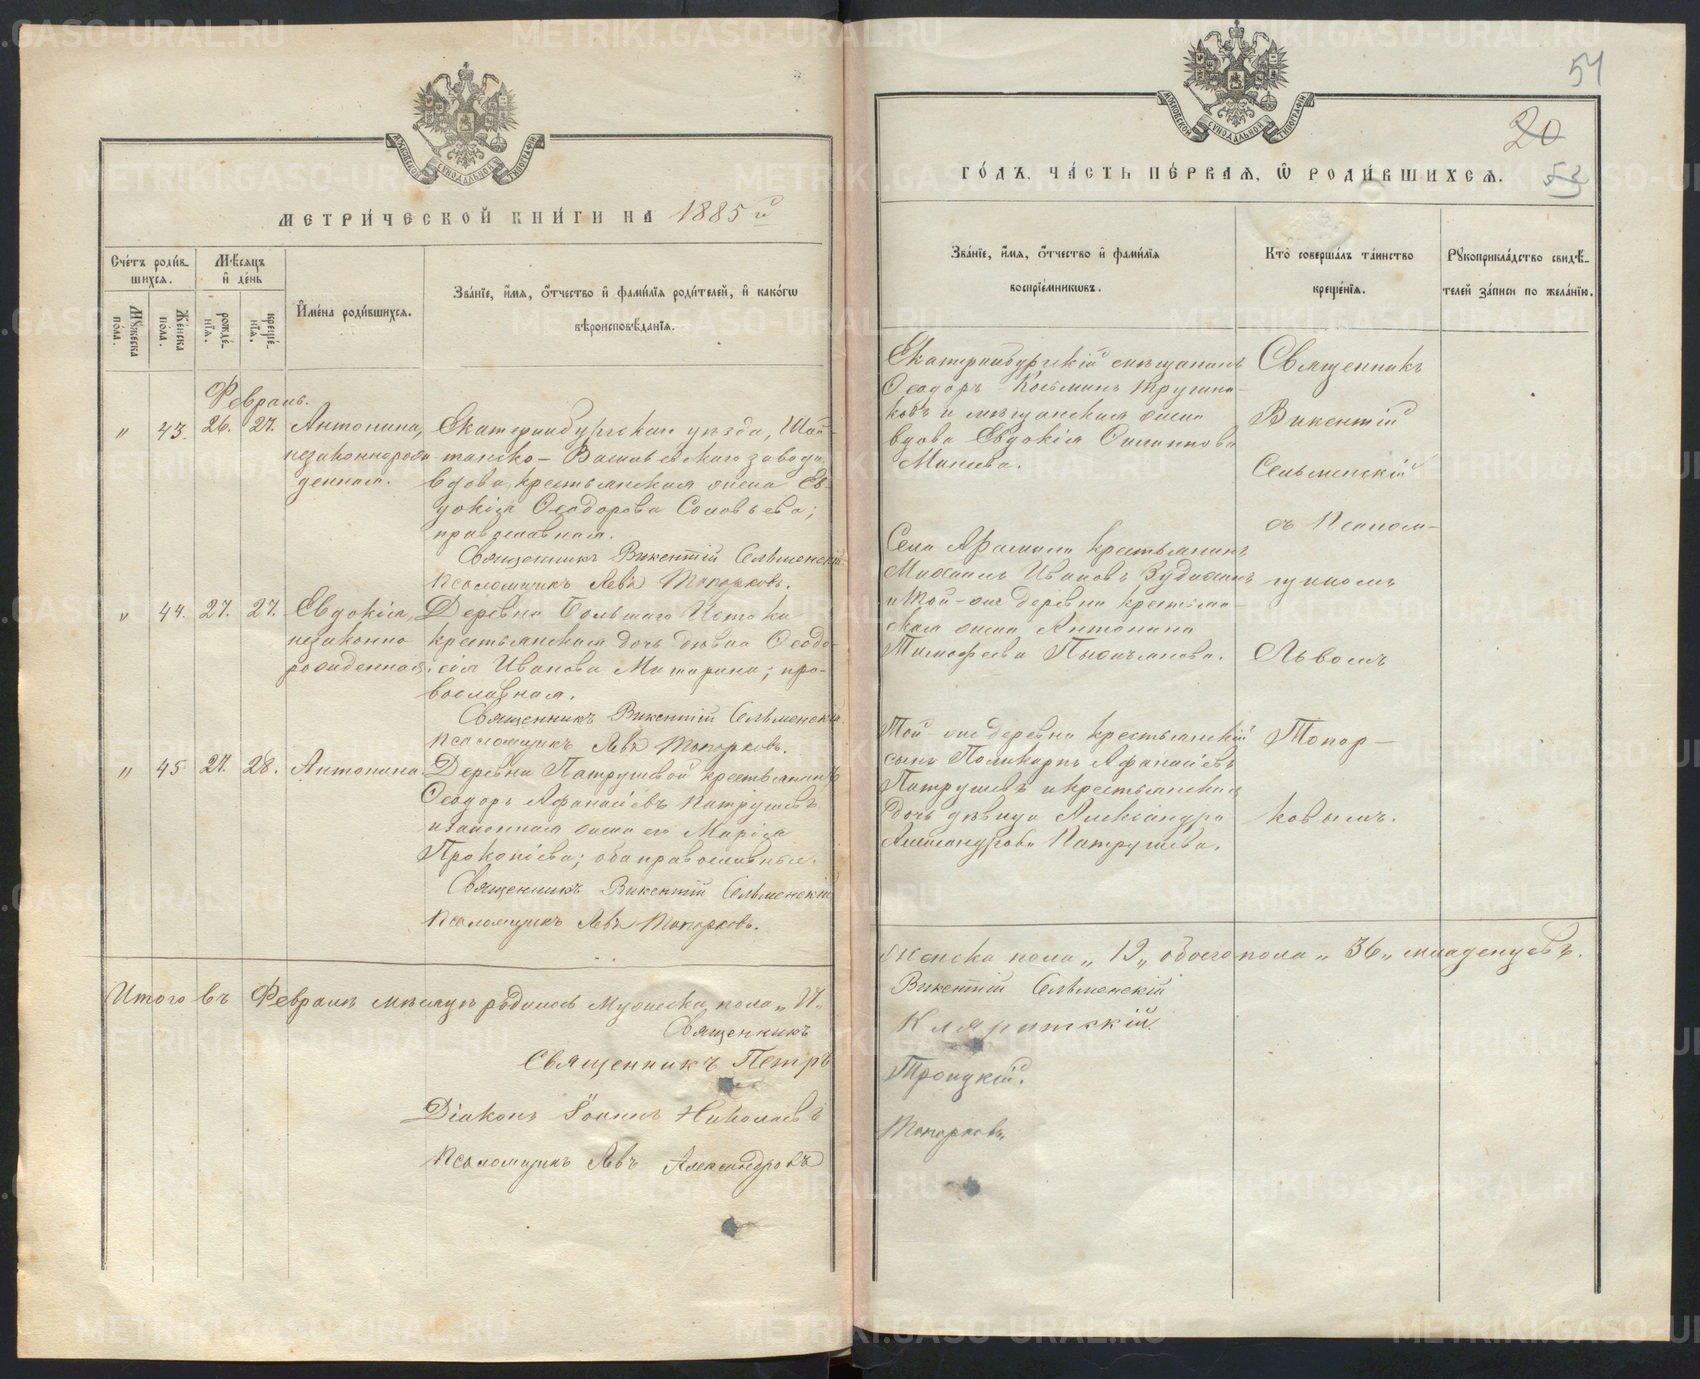 МЕТРИ́ЧЕСКОЙ КНИ́ГИ НА 1885 й
Сче́тъ роди́в-
шихся.
Мѣсяцъ
и҆ де́нь
Му́жеска
по́ла.
Же́нска
по́ла.
рожде́-
нїя.
креще́-
нїя.
И҆мена̀ роди́вшихся.
Зва́нїе, и҆́мя, ѻ҆́тчество и҆ фами́лїя роди́телей, и҆ како́гѡ
вѣроисповѣ́данїя.
Февраль.
„ 43. 26. 27. Антонина,
незаконнорож-
денная.
Екатеринбургскаго уѣзда, Шай-
танско-Васильевскаго завода,
вдова, крестьянская жена Ев-
докія Ѳеодорова Соловьева;
православная.
Священникъ Викентій Сельменскій
Псаломщикъ Левъ Топорковъ.
„ 44. 27. 27. Евдокія,
незаконно
рожденная.
Деревни Большаго Истока
крестьянская дочь дѣвица Ѳеодо-
сія Иванова Материна; пра-
вославная.
Священникъ Викентій Сельменскій
Псаломщикъ Левъ Топорковъ.
„ 45 27. 28. Антонина.
Деревни Патрушевой крестьянинъ
Ѳеодоръ Афанасіевъ Патрушевъ
и законная жена его Марія
Прокопіева; оба православные.
Священникъ Викентій Сельменскій
Псаломщикъ Левъ Топорковъ.
Итого въ Февралѣ мѣсяцѣ родилось мужеска пола „17„
Священникъ
Священникъ Петръ
Діаконъ Іоаннъ Николаевъ
Псаломщикъ Левъ Александровъ
51
20
53
ГО́ДЪ, ЧА́СТЬ ПЕ́РВАЯ, Ѽ РОДИ́ВШИХСЯ.
Зва́нїе, и҆́мя, ѻ҆́тчество и҆ фами́лїя
воспрїе́мникѡвъ.
Кто̀ соверша́лъ та́инство
креще́нїя.
Рукоприкла́дство свидѣ́-
телей за́писи по жела́нїю.
Екатеринбургскій мѣщанинъ
Ѳеодоръ Косьминъ Трушни-
ковъ и мѣщанская жена
вдова Евдокія Филиппова
Села Арамили крестьянинъ
Михаилъ Ивановъ Зудихинъ
и той-же деревни крестьян-
ская жена Антонина
Тимофеева
Той-же деревни крестьянскій
сынъ Поликарпъ Афанасіевъ
Патрушевъ и крестьянская
дочь дѣвица Александра
Александрова Патрушева.
Священникъ
Викентій
Сельменскій
съ Псалом-
щикомъ
Львомъ
Топор-
ковымъ.
женска пола „19„ обоего пола „36„ младенцевъ.
Викентій Сельменскій
Кляритскій.
Троицкій.
Топорковъ.
METRIKI.GASO-URAL.RU